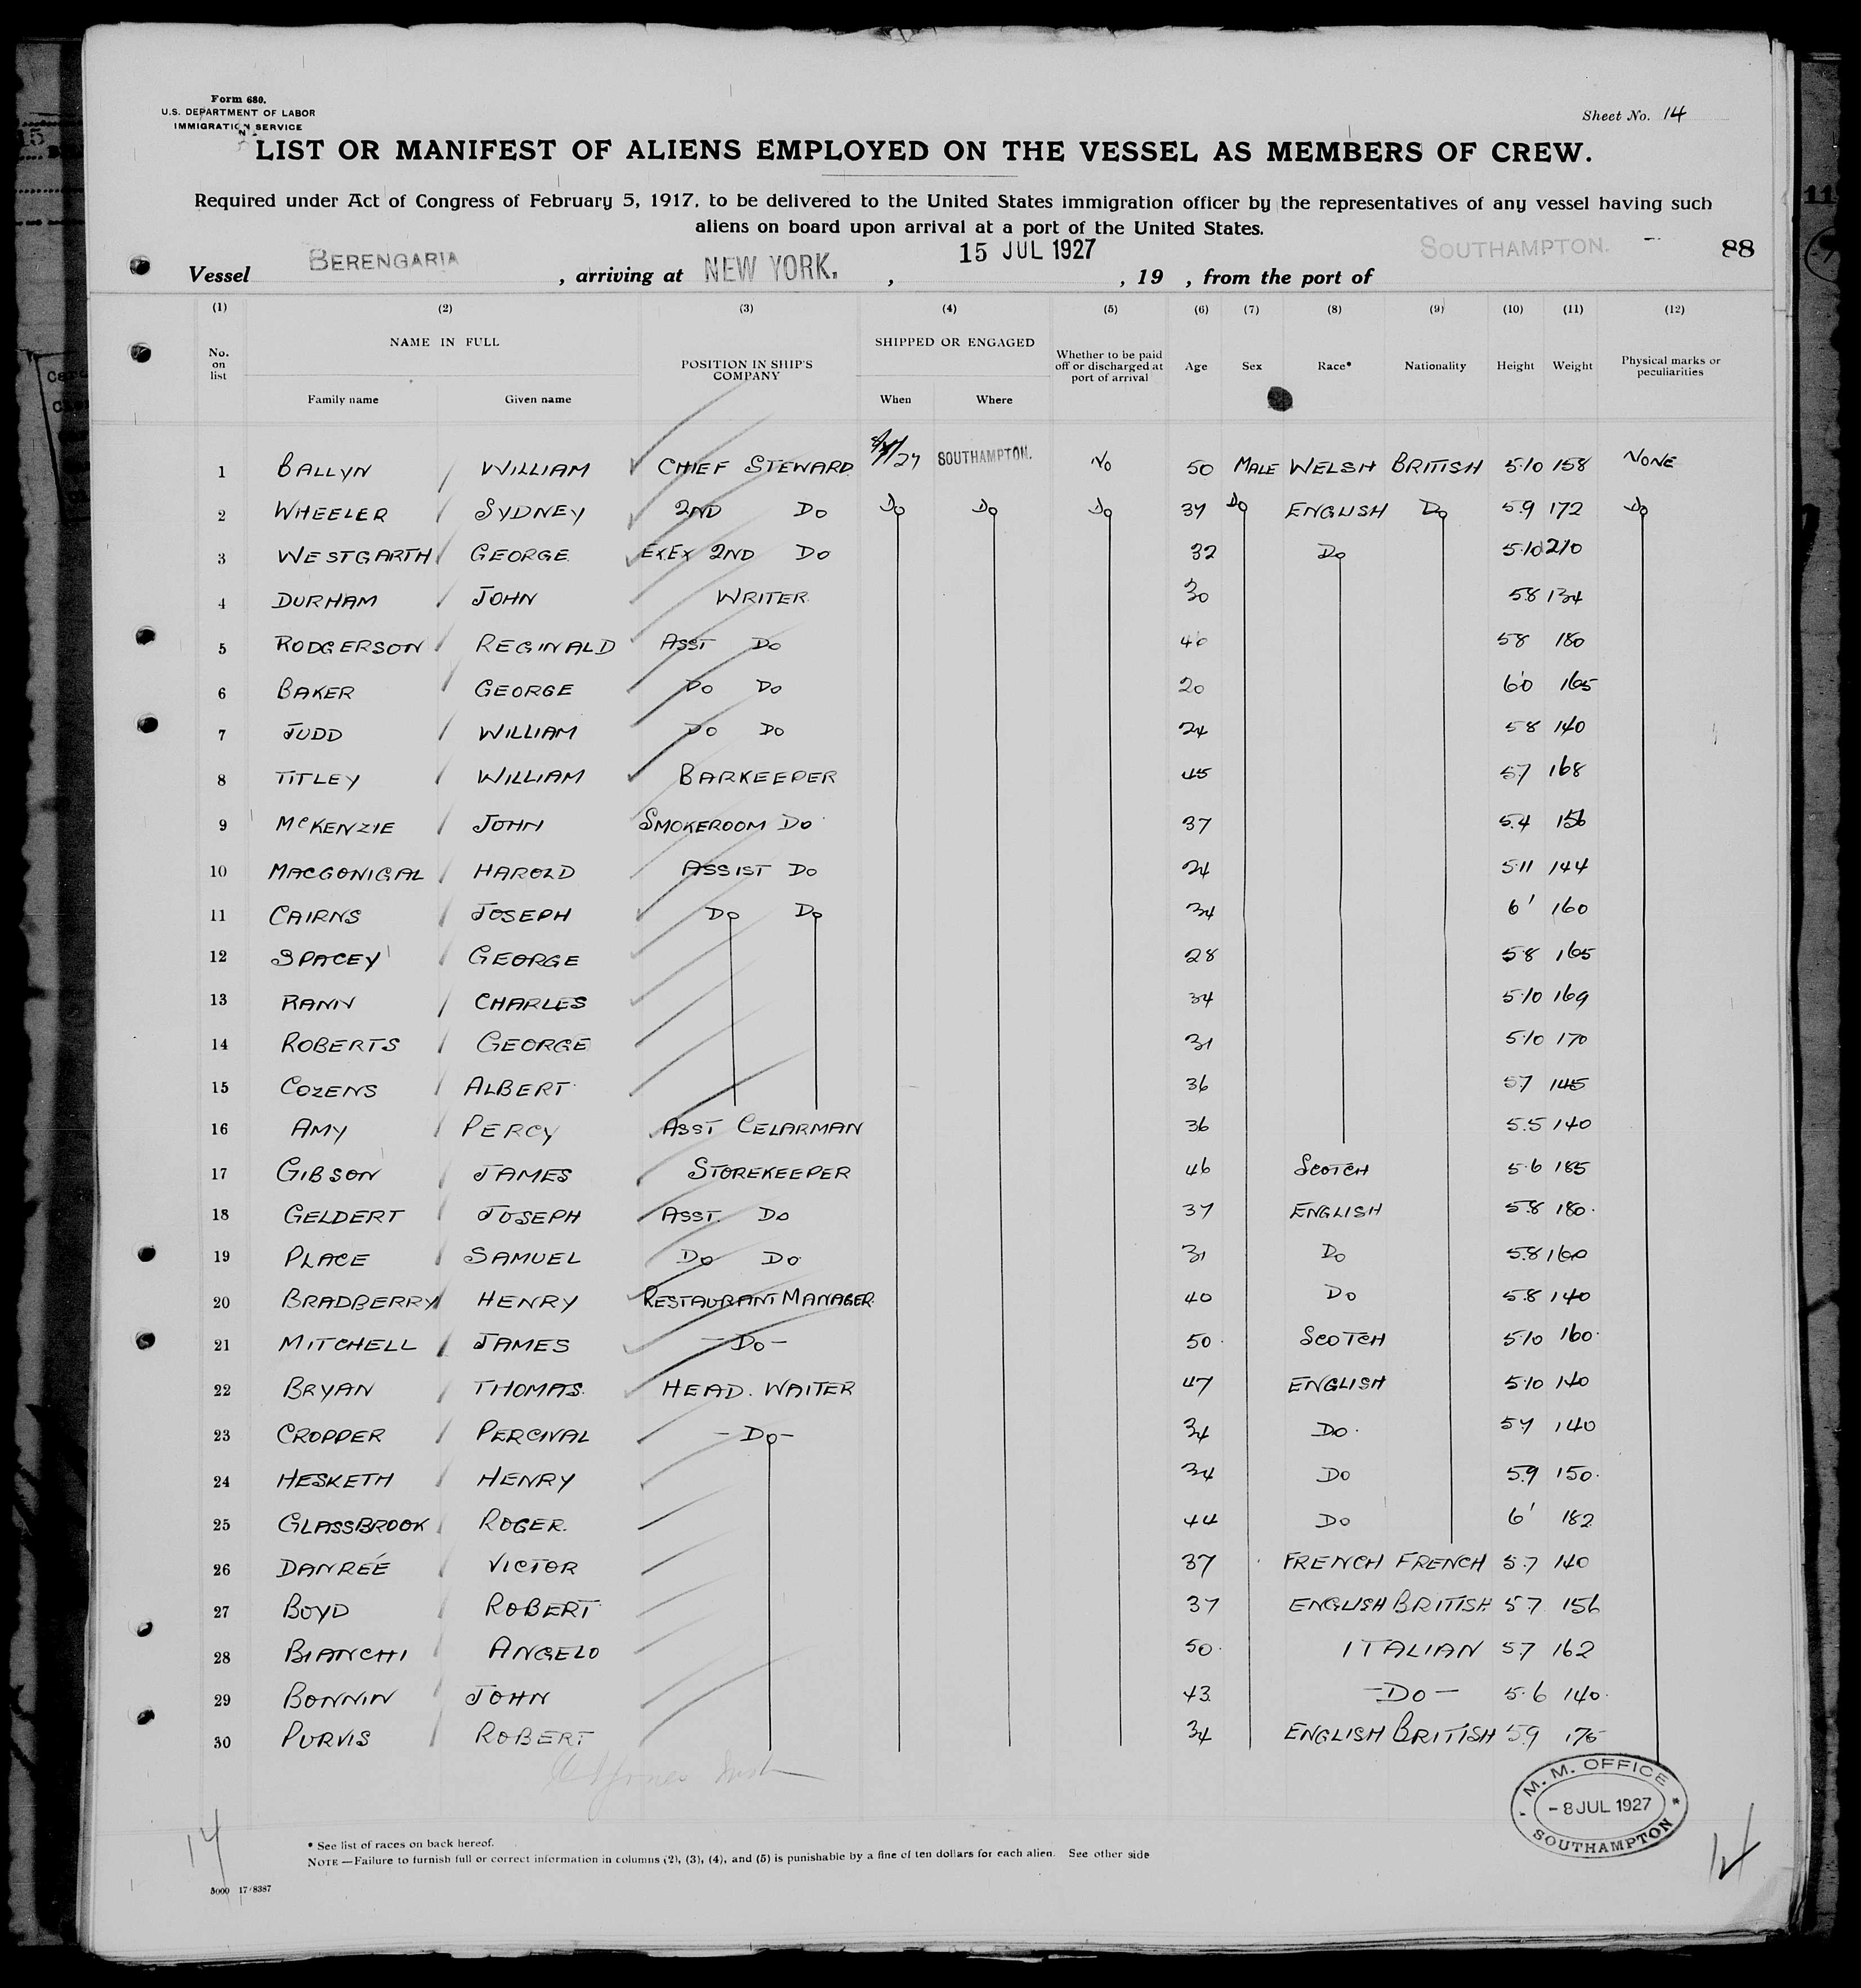 Form 680.
U.S. DEPARTMENT OF LABOR
IMMIGRATION SERVICE
Sheet No. 14
LIST OR MANIFEST OF ALIENS EMPLOYED ON THE VESSEL AS MEMBERS OF CREW.
Required under Act of Congress of February 5, 1917, to be delivered to the United States immigration officer by the representatives of any vessel having such
aliens on board upon arrival at a port of the United States.
Vessel BERENGARIA, arriving at NEW YORK., 15 JUL 1927, 19 , from the port of SOUTHAMPTON. 88
(1) (2) (3) (4) (5) (6) (7) (8) (9) (10) (11) (12)
No. on list NAME IN FULL Family name Given name POSITION IN SHIP'S COMPANY SHIPPED OR ENGAGED When Where Whether to be paid off or discharged at port of arrival Age Sex Race* Nationality Height Weight Physical marks or peculiarities
1 BALLYN WILLIAM CHIEF STEWARD 8/7/27 SOUTHAMPTON. No 50 MALE WELSH BRITISH 5·10 158 NONE
2 WHEELER SYDNEY 2ND Do Do Do Do 37 Do ENGLISH Do 5.9 172 Do
3 WESTGARTH GEORGE ExEx 2ND Do 32 Do 5·10 210
4 DURHAM JOHN WRITER 30 5.8 134
5 RODGERSON REGINALD ASST Do 40 58 180
6 BAKER GEORGE Do Do 20 6'0 165
7 JUDD WILLIAM Do Do 24 58 140
8 TITLEY WILLIAM BARKEEPER 45 57 168
9 McKENZIE JOHN SMOKEROOM Do 37 5.4 156
10 MACGONIGAL HAROLD ASSIST Do 24 5·11 144
11 CAIRNS JOSEPH Do Do 34 6' 160
12 SPACEY GEORGE 28 58 165
13 RANN CHARLES 34 5·10 169
14 ROBERTS GEORGE 31 5·10 170
15 COZENS ALBERT 36 57 145
16 AMY PERCY ASST CELARMAN 36 5.5 140
17 GIBSON JAMES STOREKEEPER 46 SCOTCH 5·6 185
18 GELDERT JOSEPH ASST. Do 37 ENGLISH 5.8 180.
19 PLACE SAMUEL Do Do 31 Do 5.8 160
20 BRADBERRY HENRY RESTAURANT MANAGER 40 Do 5.8 140
21 MITCHELL JAMES -Do- 50 SCOTCH 5·10 160
22 BRYAN THOMAS. HEAD. WAITER 47 ENGLISH 5·10 140
23 CROPPER PERCIVAL -Do- 34 Do 57 140
24 HESKETH HENRY 34 Do 5.9 150.
25 GLASSBROOK ROGER. 44 Do 6' 182
26 DANRÉE VICTOR 37 FRENCH FRENCH 5.7 140
27 BOYD ROBERT 37 ENGLISH BRITISH 57 156
28 BIANCHI ANGELO 50. ITALIAN 57 162
29 BONNIN JOHN 43 -Do- 5·6 140.
30 PURVIS ROBERT 34 ENGLISH BRITISH 59 175
M. M. OFFICE
-8 JUL 1927
SOUTHAMPTON
14 14
* See list of races on back hereof.
NOTE—Failure to furnish full or correct information in columns (2), (3), (4), and (5) is punishable by a fine of ten dollars for each alien. See other side
5000 17/8387